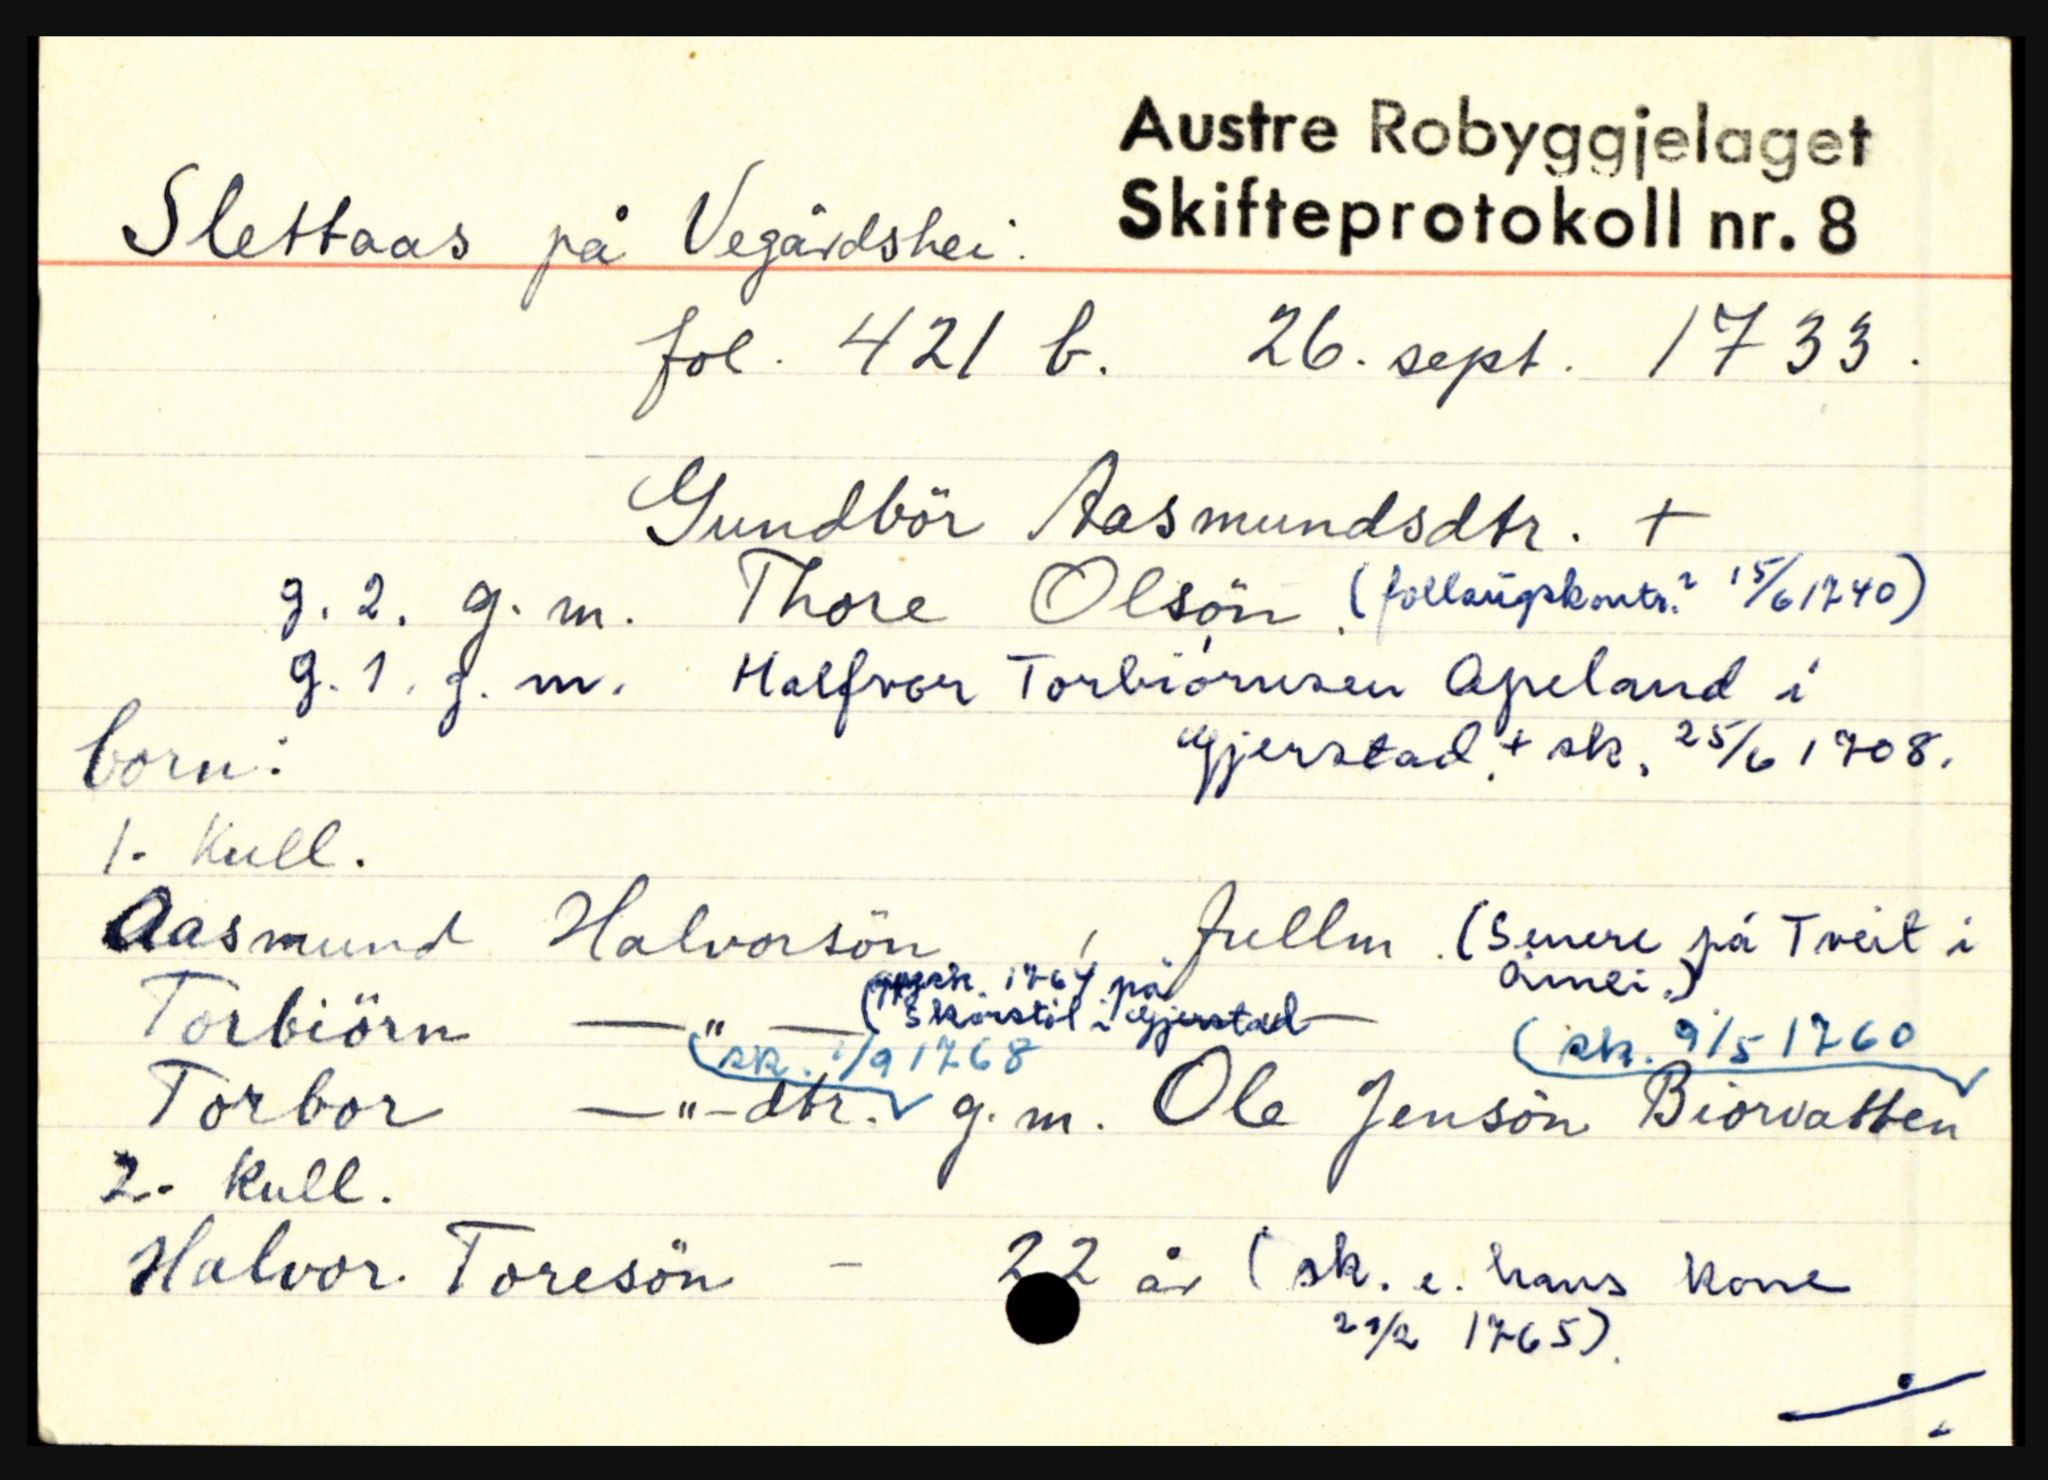 Austre Robyggjelaget
Skifteprotokoll nr. 8
Slettaas på Vegårdshei.
fol. 421 b. 26. sept. 1733.
Gundbör Aasmundsdtr. +
g. 2. g. m. Thore Olsön (follaugskontr.? 15/6 1740)
g. 1. g. m. Halfvor Torbiörnsen Apeland i
Gjerstad, + sk. 25/6 1708.
born:
1. Kull.
Aasmund Halvorsön, fullm. (Senere på Tveit i
Åmli.)
(oppsk. 1764 på
Torbiörn — " — Skorstöl i Gjerstad —
(sk. 1/9 1768 (sk. 9/5 1760
Torbor — " — dtr. g. m. Ole Jensön Biorvatten
2. Kull.
Halvor Toresön – 22 år (sk. e. hans kone
21/2 1765).